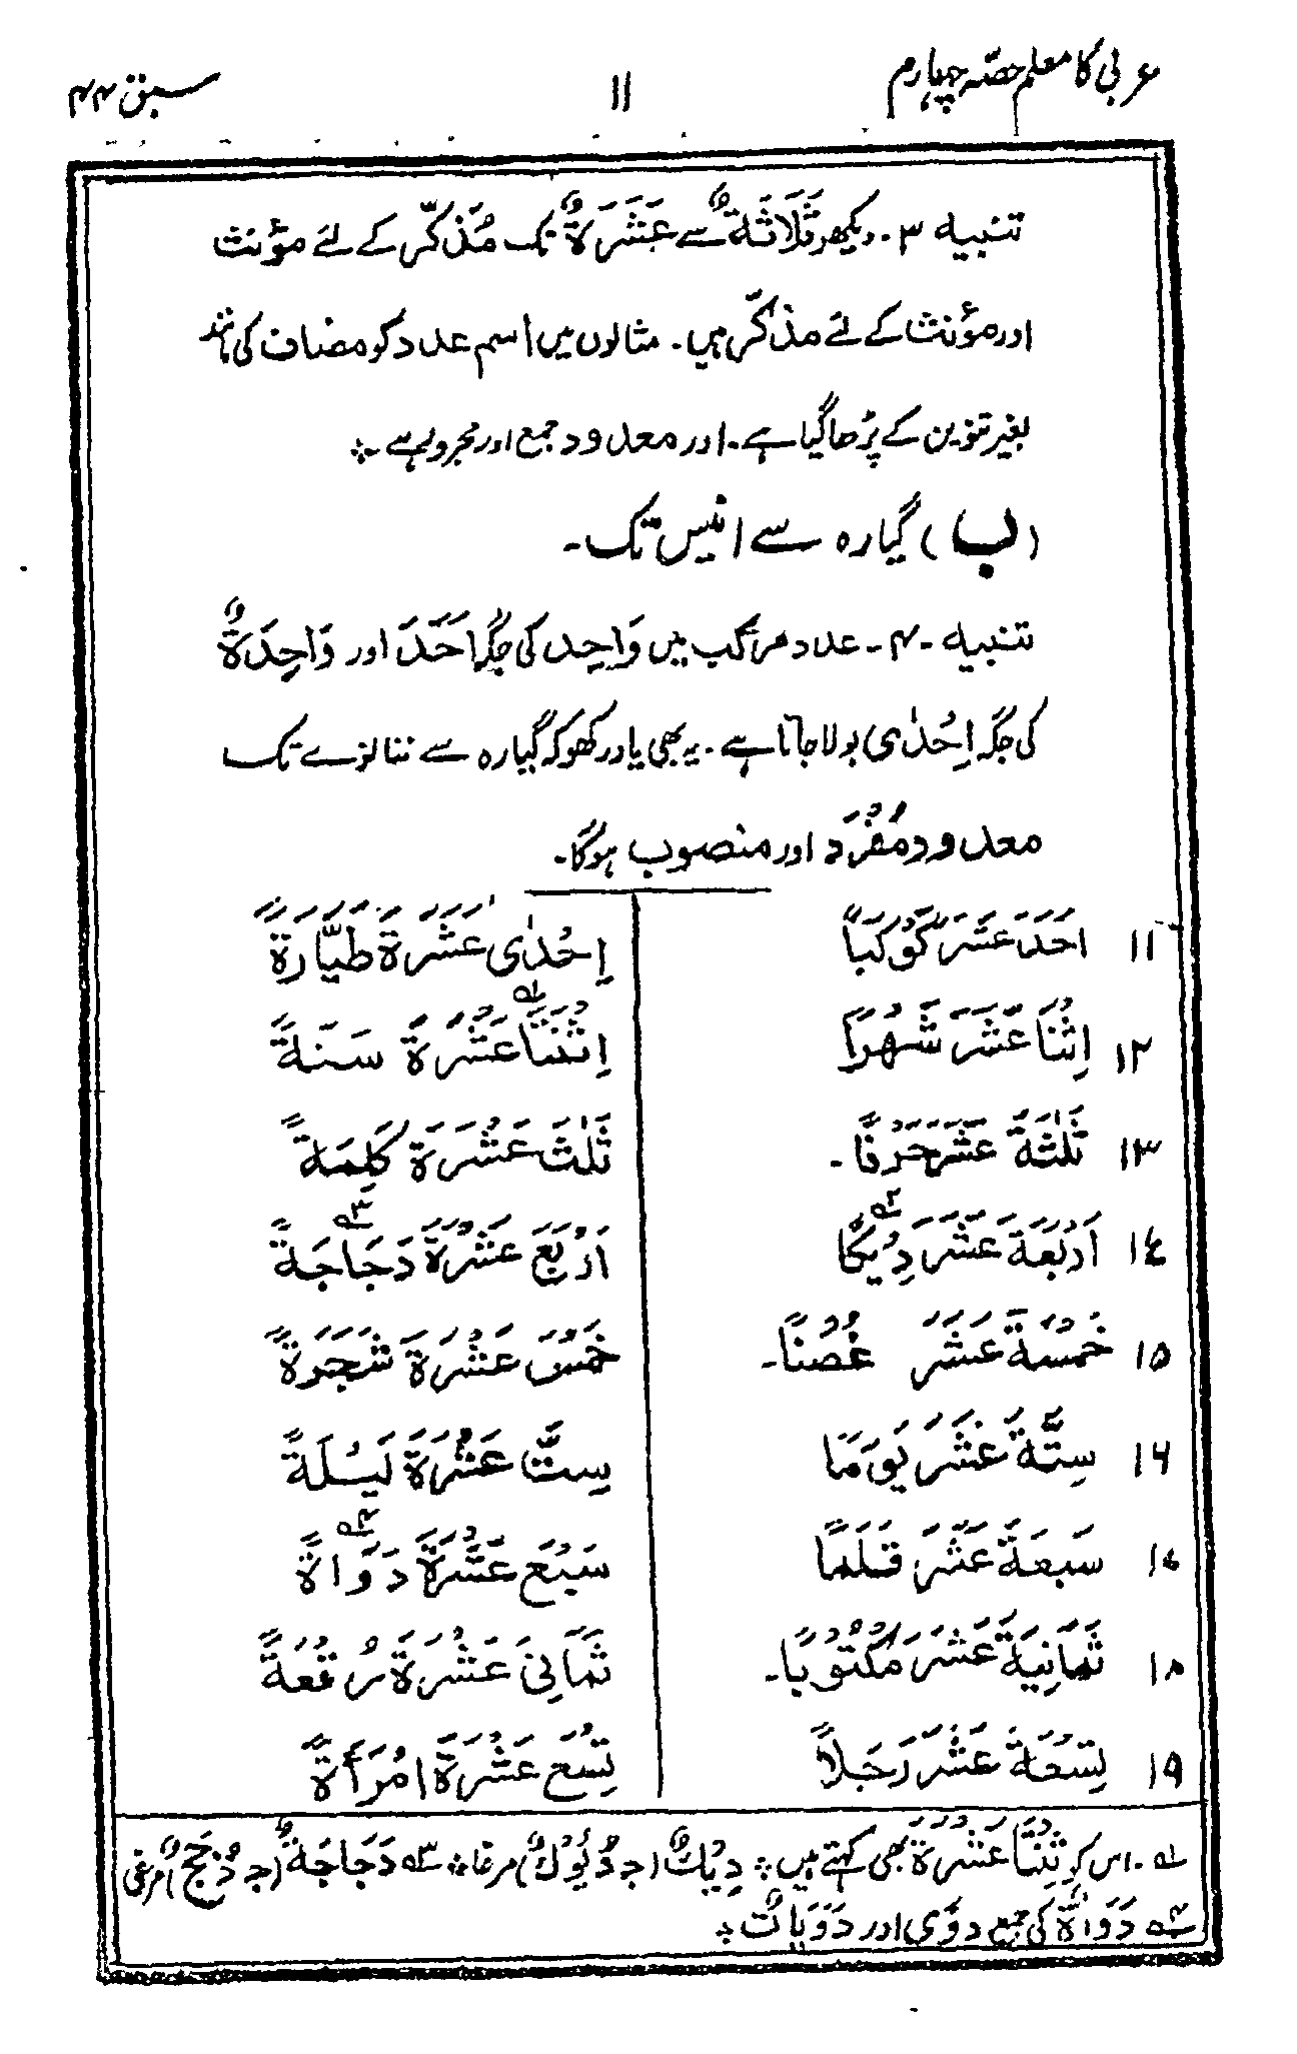 عربی کا معلم حصّہ چہارم ۱۱ سبق ۴۴
تنبیہ ۳۔ دیکھو ثَلَاثَةٌ سے عَشَرَةٌ تک مُذَکّر کے لئے مؤنث
اور مؤنث کے لئے مذکّر ہیں۔ مثالوں میں اسم عدد کو مضاف کی مانند
بغیر تنوین کے پڑھا گیا ہے۔ اور معدود جمع اور مجرور ہے ۔:
(ب) گیارہ سے انیس تک۔
تنبیہ ۔۴۔ عدد مرکب میں وَاحِد کی جگہ اَحَدَ اور وَاحِدَةٌ
کی جگہ اِحْدٰی بولا جاتا ہے۔ یہ بھی یاد رکھو کہ گیارہ سے ننانوے تک
معدود مُفْرَد اور منصوب ہوگا۔
۱۱ اَحَدَ عَشَرَ كَوْكَبًا اِحْدٰى عَشْرَةَ طَيَّارَةً
۱۲ اِثْنَا عَشَرَ شَهْرًا اِثْنَتَا عَشْرَةَ سَنَةً ؎۱
۱۳ ثَلٰثَةَ عَشَرَ حَرْفًا۔ ثَلٰثَ عَشْرَةَ كَلِمَةً
۱٤ اَرْبَعَةَ عَشَرَ دِيْكًا ؎۲ اَرْبَعَ عَشْرَةَ دَجَاجَةً ؎۳
۱۵ خَمْسَةَ عَشَرَ غُصْنًا۔ خَمْسَ عَشْرَةَ شَجَرَةً
۱۶ سِتَّةَ عَشَرَ يَوْمًا سِتَّ عَشْرَةَ لَيْلَةً
۱۷ سَبْعَةَ عَشَرَ قَلَمًا سَبْعَ عَشْرَةَ دَوَاةً ؎۴
۱۸ ثَمَانِيَةَ عَشَرَ مَكْتُوْبًا۔ ثَمَانِيَ عَشْرَةَ رُقْعَةً
۱۹ تِسْعَةَ عَشَرَ رَجُلاً تِسْعَ عَشْرَةَ امْرَأَةً
؎۱۔ اس کو ثِنْتَا عَشْرَةَ بھی کہتے ہیں ۔: دِيْكٌ (جـ دُيُوْكٌ) مرغا ۔: ؎۳ دَجَاجَةٌ (جـ دُجُجٌ) مرغی
؎۴ دَوَاةٌ کی جمع دوی اور دَوَيَاتٌ ۔: